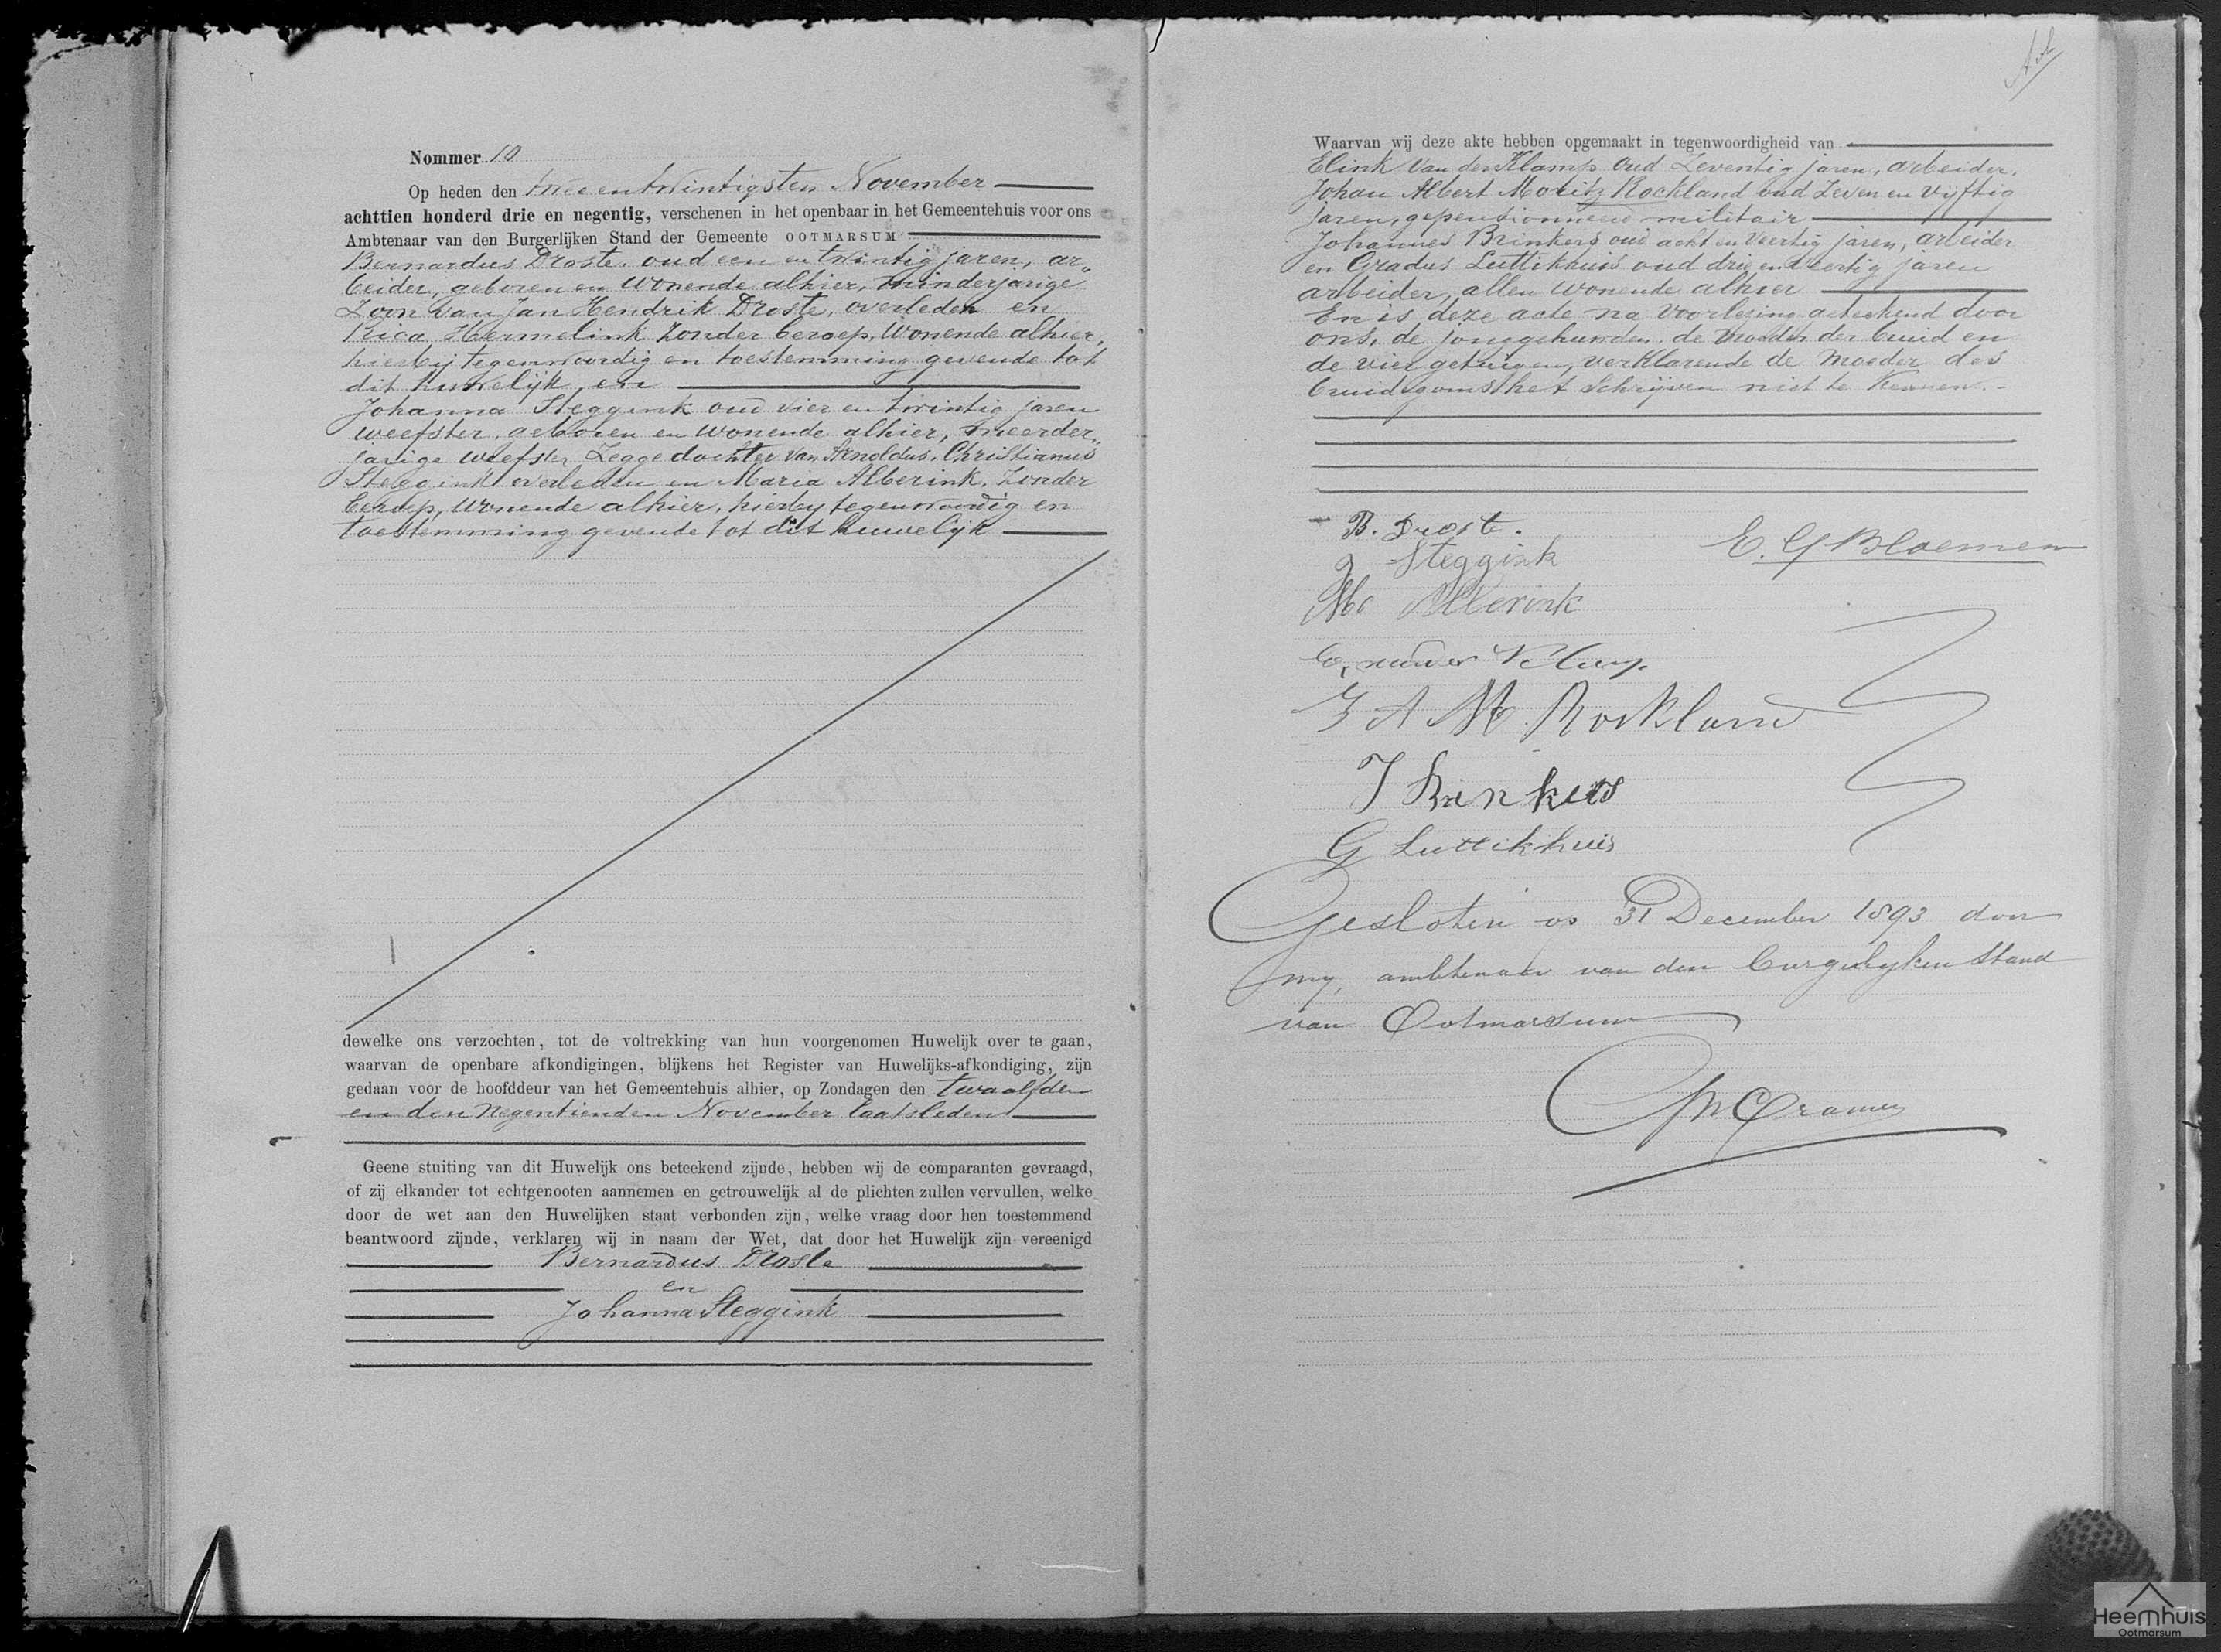 Nommer 10
Op heden den twee en twintigsten November
achttien honderd drie en negentig, verschenen in het openbaar in het Gemeentehuis voor ons
Ambtenaar van den Burgerlijken Stand der Gemeente OOTMARSUM
Bernardus Droste, oud een en twintig jaren, ar„
beider, geboren en wonende alhier, minderjarige
Zoon van Jan Hendrik Droste, overleden en
Rica Hermelink Zonder beroep, wonende alhier,
hierbij tegenwoordig en toestemming gevende tot
dit huwelijk, en
Johanna Steggink oud vier en twintig jaren
weefster, geboren en wonende alhier, meerder„
jarige weefster dochter van Arnoldus, Christianus
Steggink overleden en Maria Alberink, Zonder
beroep, wonende alhier, hierby tegenwoordig en
toestemming gevende tot dit huwelijk
dewelke ons verzochten, tot de voltrekking van hun voorgenomen Huwelijk over te gaan,
waarvan de openbare afkondigingen, blijkens het Register van Huwelijks-afkondiging, zijn
gedaan voor de hoofddeur van het Gemeentehuis alhier, op Zondagen den twaalfden
en den negentienden November laatsleden
Geene stuiting van dit Huwelijk ons beteekend zijnde, hebben wij de comparanten gevraagd,
of zij elkander tot echtgenooten aannemen en getrouwelijk al de plichten zullen vervullen, welke
door de wet aan den Huwelijken staat verbonden zijn, welke vraag door hen toestemmend
beantwoord zijnde, verklaren wij in naam der Wet, dat door het Huwelijk zijn vereenigd
Bernardus Droste
en
Johanna Steggink
Waarvan wij deze akte hebben opgemaakt in tegenwoordigheid van
Elink van der Klamp oud Zeventig jaren, arbeider,
Johan Albert Moritz Rockland oud Zeven en Vijftig
jaren, gepensionneerd militair
Johannes Brinkers oud acht en veertig jaren, arbeider
en Gradus Luttikhuis oud drie en veertig jaren
arbeider, allen wonende alhier
En is deze acte na voorlezing geteekend door
ons, de jonggehuwden, de moeder der bruid en
de vier getuigen, verklarende de moeder des
bruidegoms het schrijven niet te kennen.
B. Droste.
E. G Bloemen
J Steggink
M Alberink
E, van der Klamp.
J A M Rockland
J Brinkers
G Luttikhuis
Gesloten op 31 December 1893 door
my, ambtenaar van den burgerlyken Stand
van Ootmarsum
Cramer
Heemhuis
Ootmarsum